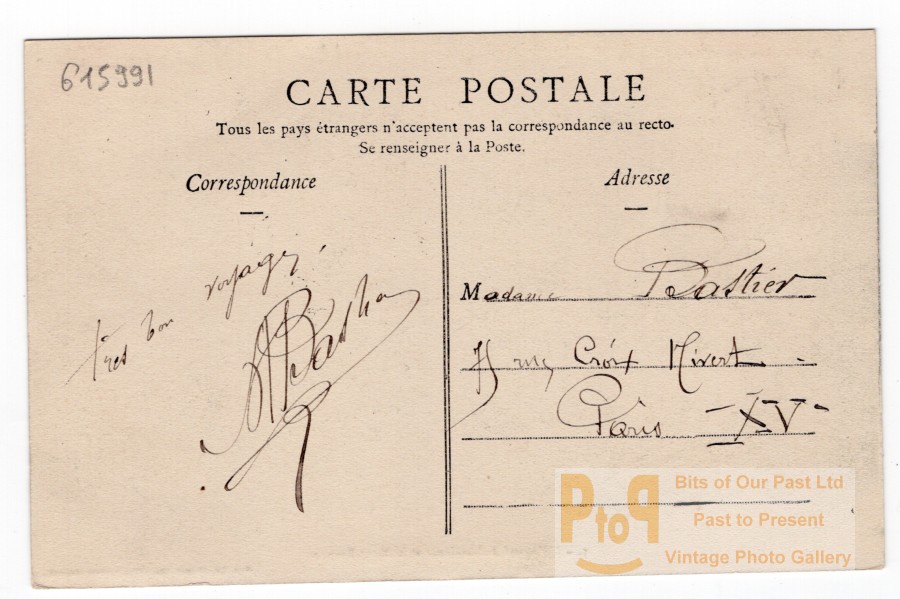 615991
CARTE POSTALE
Tous les pays étrangers n'acceptent pas la correspondance au recto.
Se renseigner à la Poste.
Correspondance
Très bon voyage,
Adresse
Madame Bastier
rue Croix Nivert
Paris - XV -
PtoP
Bits of Our Past Ltd
Past to Present
Vintage Photo Gallery